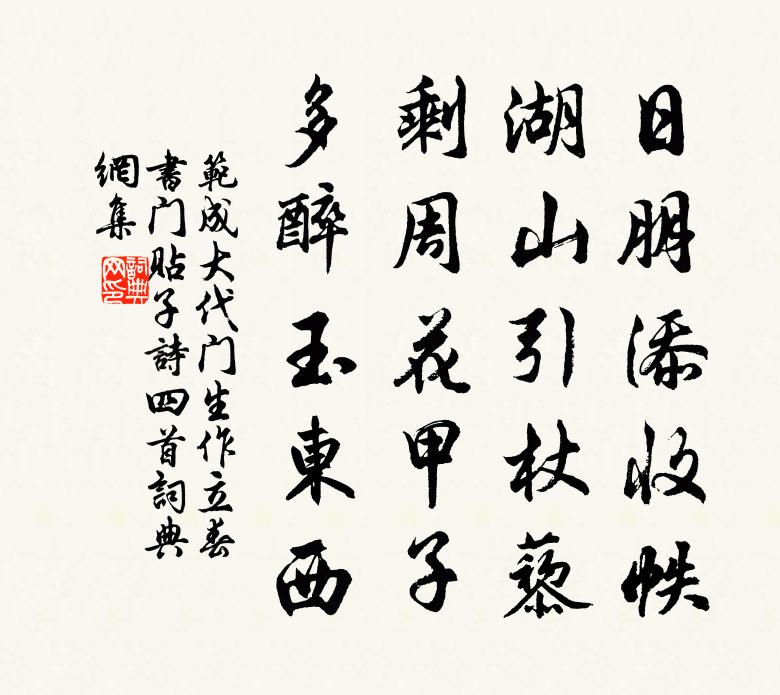 日明添收帙
湖山引杖藜
剩周花甲子
多醉玉東西
範成大代门生作立春
書门貼子詩四首詞典
網集
詞典网印